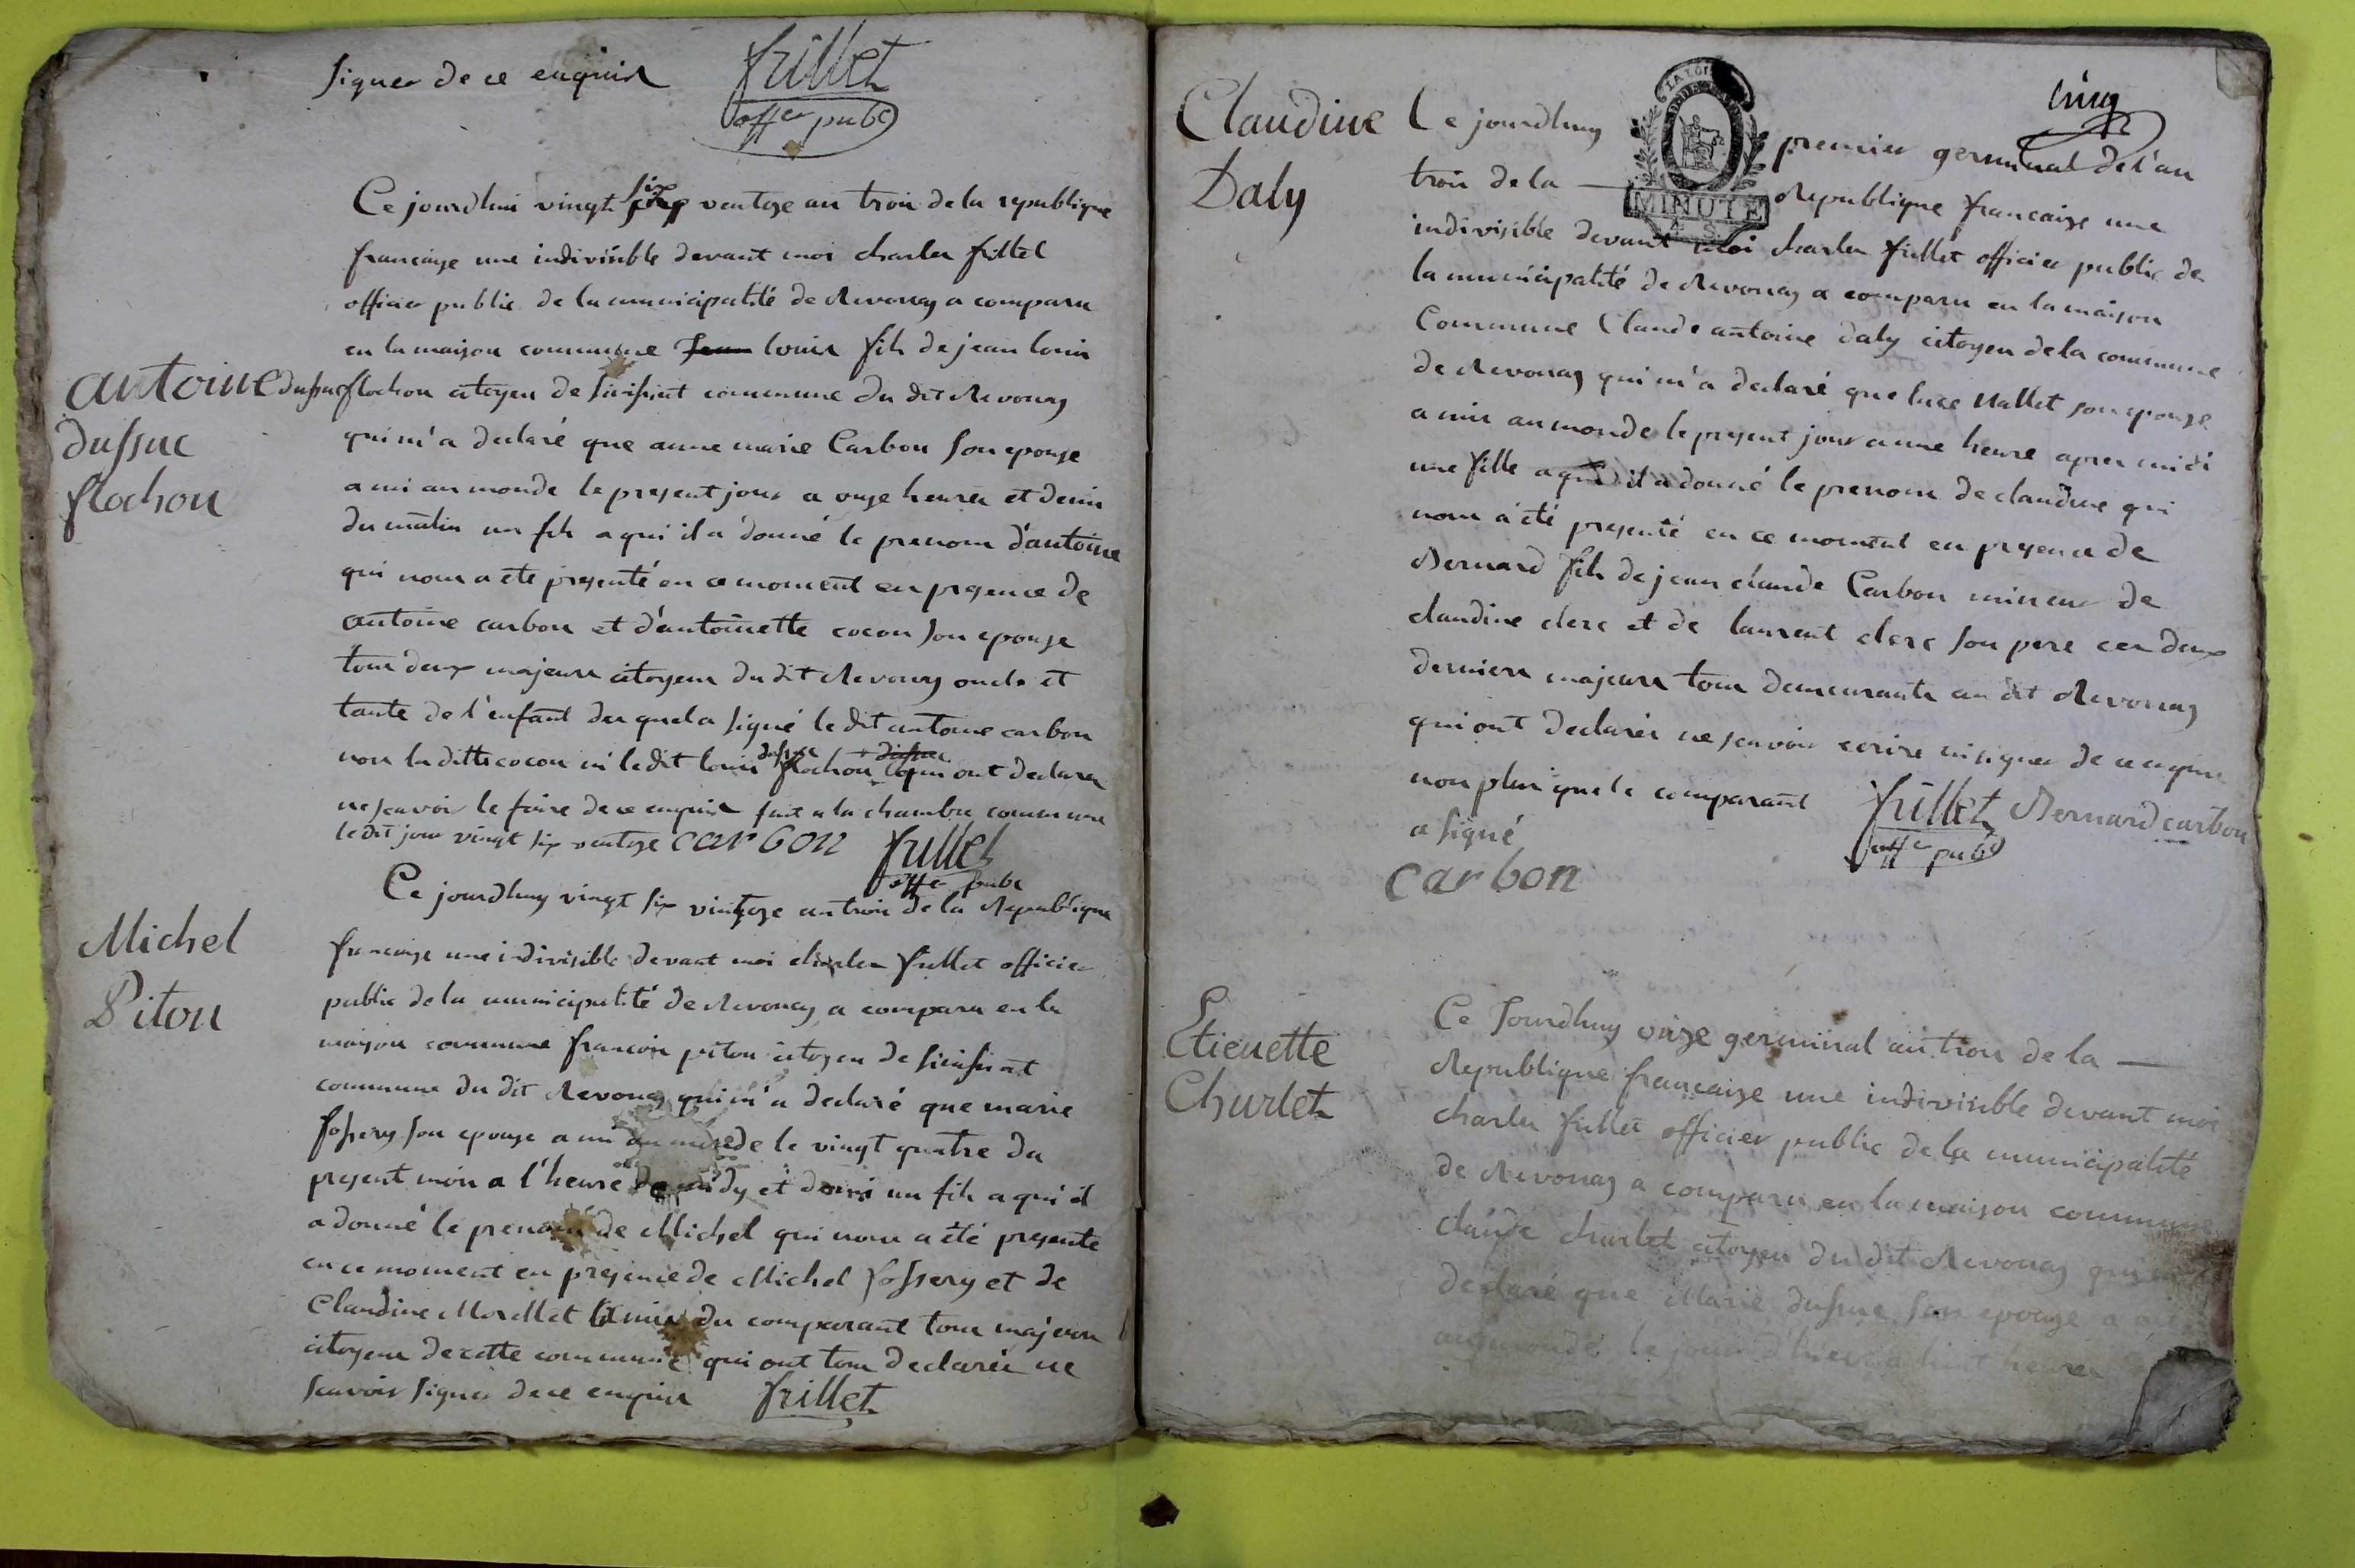 signer de ce enquis frillet
offer pubc
Ce jourdhui vingt six ventose an trois de la republique
francaise une indivisible devant moi charles frillet
officier public de la municipalité de Revonas a comparu
en la maison commune Jean louis fils de jean louis
antoine
dussuc
flochon
dussuc flochon citoyen de sinissiat commune du dit Revonas
qui m'a declaré que anne marie Carbon son epouse
a mi au monde le present jour a onze heures et demis
du matin un fils a qui il a donné le prenom d'antoine
qui nous a ete presenté en ce moment en presence de
antoine carbon et d'antoinette cocon son epouse
tous deux majeurs citoyens du dit Revonas oncle et
tante de l'enfant des quels a signé le dit antoine carbon
non la ditte cocon ni le dit louis dussuc flochon dussuc qui ont declarer
ne scavoir le faire de ce enquis fait a la chambre commune
le dit jour vingt six ventose carbon frillet
offer pubc
Michel
Piton
Ce jourdhuy vingt six vintose an trois de la Republique
francaise une indivisible devant moi charles frillet officier
public de la municipalité de Revonas a comparu en la
maison commune francois piton citoyen de sinissiat
commune du dit Revonas qui m'a declaré que marie
fossery son epouse a mi au monde le vingt quatre du
present mois a l'heure de midy et demi un fils a qui il
a donné le prenom de Michel qui nous a été presenté
en ce moment en presence de Michel fossery et de
Claudine Morellet du comparant tous majeurs
citoyens de cette commune qui ont tous declarés ne
scavoir signer de ce enquis frillet
cinq
Claudine
Daly
LA LOI
MINUTE
Ce jourdhuy premier germinal de l'an
trois de la — Republique francaise une
indivisible devant moi charles frillet officier public de
la municipalité de Revonas a comparu en la maison
Commune Claude antoine daly citoyen de la commune
de Revonas qui m'a declaré que luce Mallet son epouse
a mis au monde le present jour a une heure apres midi
une fille a qui il a donné le prenom de claudine qui
nous a été presenté en ce moment en presence de
Bernard fils de jean claude Carbon mineur de
claudine clerc et de laurent clerc son pere ces deux
derniers majeurs tous demeurants au dit Revonas
qui ont declarés ne scavoir ecrire ni signer de ce enquis
non plus que le comparant frillet Bernard carbon
a signé offer pubc
carbon
Etienette
Churlet
Ce Jourdhuy onze germinal an trois de la —
Republique francaise une indivisible devant moi
charles frillet officier public de la municipalité
de Revonas a comparu en la maison commune
claude churlet citoyen du dit Revonas qui m'a
declaré que Marie dussuc son epouse a mi
au monde le jour d'hier a huit heures